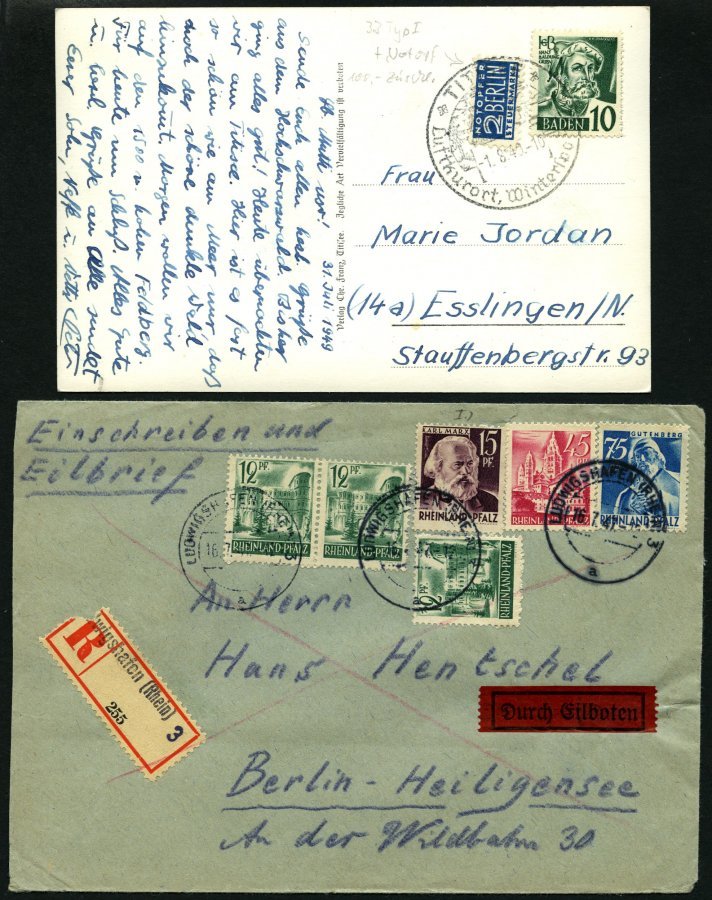 Lb. Mutti usw! 31. Juli 1949
Sende Euch allen herzl. Grüße
aus dem Hochschwarzwald. Bisher
ging alles gut! Heute übernachten
wir am Titisee. Hier ist es fast
so schön wie am Meer nur daß
noch der schöne dunkle Wald
hinzukommt. Morgen wollen wir
auf den 1500 m hohen Feldberg.
Für heute nun Schluß. Alles Gute
u. herzl. Grüße an Alle sendet
Euer
Verlag Chr. Franz, Titisee. Jegliche Art Vervielfältigung ist verboten
32 Typ I
+ Notopf
100,-
NOTOPFER
2 BERLIN
STEUERMARKE
HANS
BALDUNG
BADEN 10
TITI
1.8.49.-1
Luftkurort, Winterspo
Frau
Marie Jordan
(14a) Esslingen/N.
Stauffenbergstr. 93
Einschreiben und
Eilbrief
12 PF.
RHEINLAND-PFALZ
12 PF.
RHEINLAND-PFALZ
KARL MARX
15 PF.
RHEINLAND-PFALZ
45
RHEINLAND-PFALZ
75
GUTENBERG
RHEINLAND-PFALZ
12 PF.
RHEINLAND-PFALZ
LUDWIGSHAFEN (RHEIN) 3
16.7
a
LUDWIGSHAFEN (RHEIN)
LUDWIGSHAFEN (RHEIN) 3
16.7
a
An Herrn
Hans Hentschel
R
wigshafen (Rhein)
255
3
Durch Eilboten
Berlin-Heiligensee
An der Wildbahn 30